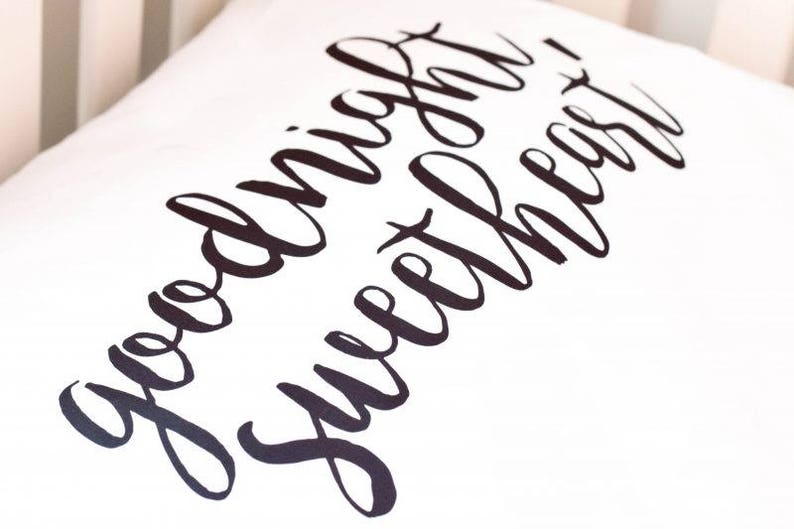 goodnight
sweetheart